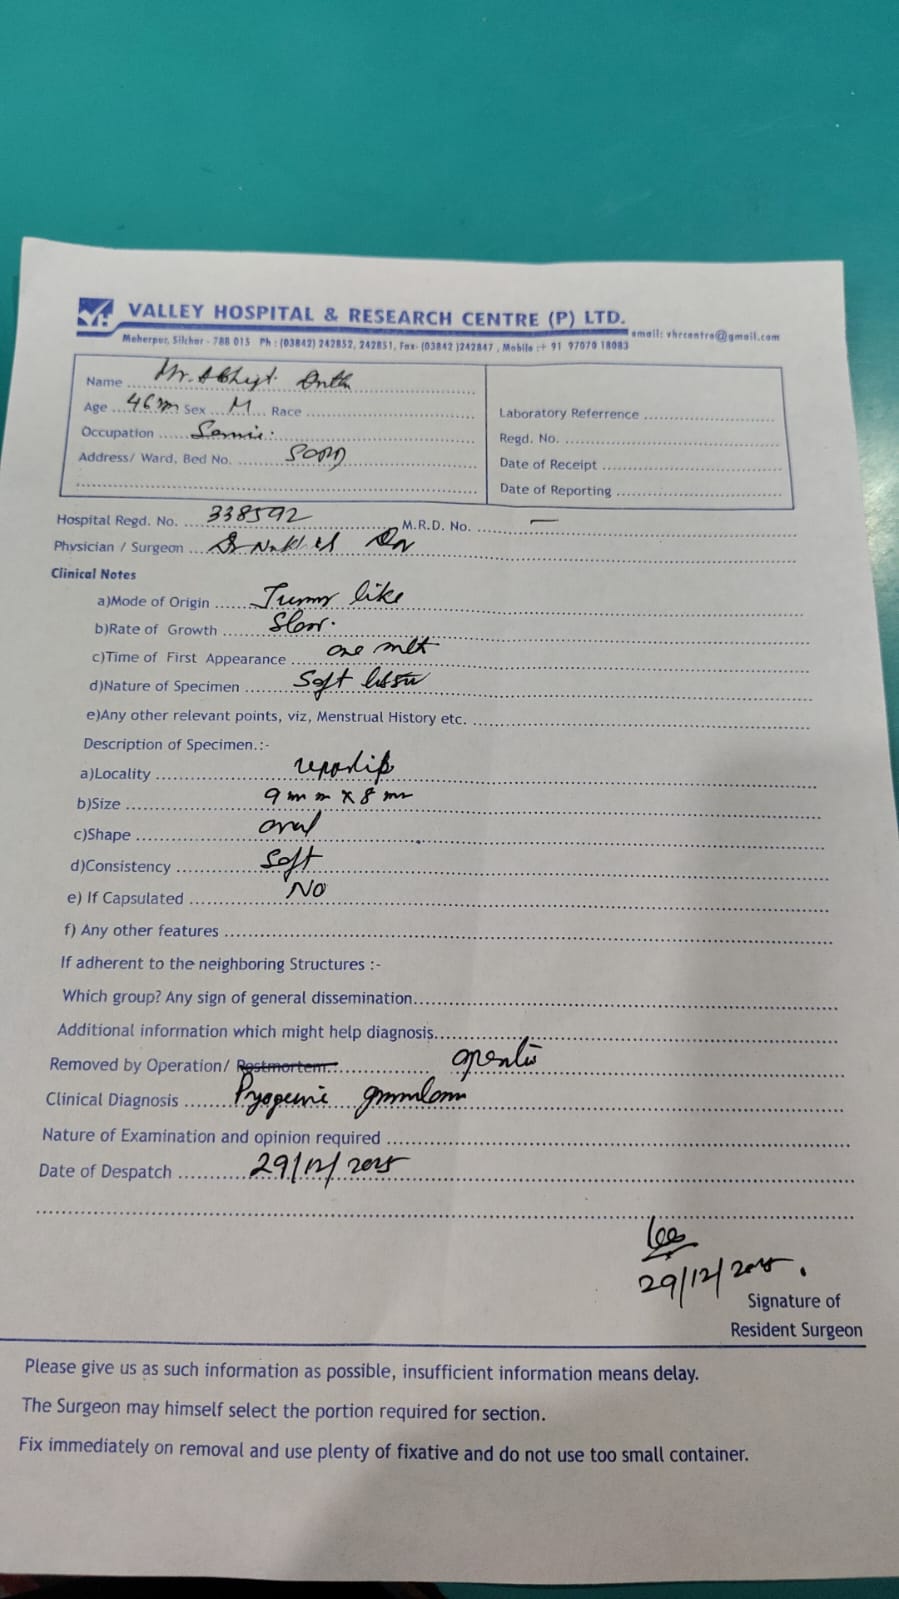 VALLEY HOSPITAL & RESEARCH CENTRE (P) LTD.
Meherpur, Silchar - 788 015 Ph : (03842) 242852, 242851, Fax- (03842 )242847 , Mobile :+ 91 97070 18083 email: vhrcentre@gmail.com
Name Mr.
Age 46 Sex M Race
Occupation
Address/ Ward, Bed No.
Laboratory Referrence
Regd. No.
Date of Receipt
Date of Reporting
Hospital Regd. No. 338592 M.R.D. No. —
Physician / Surgeon
Clinical Notes
a)Mode of Origin like
b)Rate of Growth Slow.
c)Time of First Appearance one
d)Nature of Specimen Soft
e)Any other relevant points, viz, Menstrual History etc.
Description of Specimen.:-
a)Locality
b)Size 9 mm x 8 mm
c)Shape oval
d)Consistency Soft
e) If Capsulated NO
f) Any other features
If adherent to the neighboring Structures :-
Which group? Any sign of general dissemination
Additional information which might help diagnosis
Removed by Operation/ Postmortem
Clinical Diagnosis Pyogenic granuloma
Nature of Examination and opinion required
Date of Despatch 29/12/2025
29/12/2025.
Signature of
Resident Surgeon
Please give us as such information as possible, insufficient information means delay.
The Surgeon may himself select the portion required for section.
Fix immediately on removal and use plenty of fixative and do not use too small container.